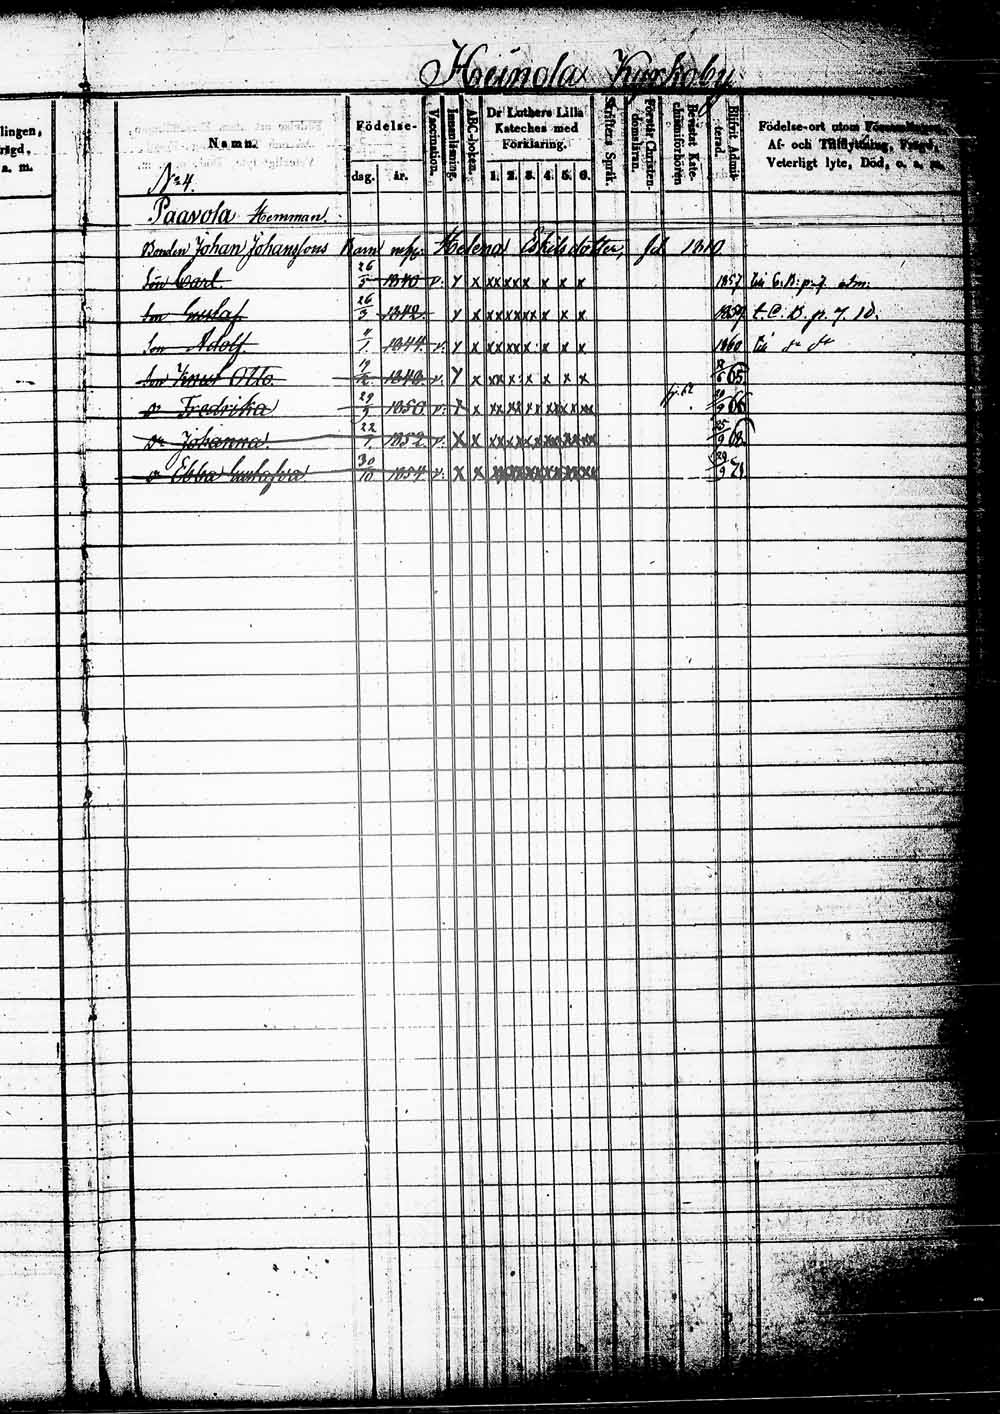 Heinola Kyrkoby
lingen,
rägd,
a. m.
Namn.
Födelse-
dag. år.
Vaccination.
Innanläsning.
ABC-boken.
Dr Luthers Lilla Kateches med Förklaring.
1. 2. 3. 4. 5. 6.
Skriftes Språk.
Förstår Christendomsläran.
Bevistat Katechismiförhören
Blifvit Admitterad.
Födelse-ort utom Församlingen,
Af- och Tillflyttning, Frägd,
Veterligt lyte, Död, o. s. m.
No 4.
Paavola Hemman.
Bonden Johan Johanssons Barn m/h Helena Eskilsdotter, föd 1810.
Son Carl 26/5 1840 v. x x xx xx x x x x 1857 till C. B. p. 7. adm.
Son Gustaf 26/3 1842 x x xx xx xx x x x 1859 t. C. B. p. 7. id.
Son Adolf 1844 v. x x xx xx x x x x 1860 till do do
Son Knut Otto v. x x xx x x x x x 65
Dr Fredrika 29/9 1850 v. x x 66
Dr Johanna 22/1 1852 v. x x 25/9 68
Dr Ebba Gustafva 30/10 1854 v. x x 29/9 71.